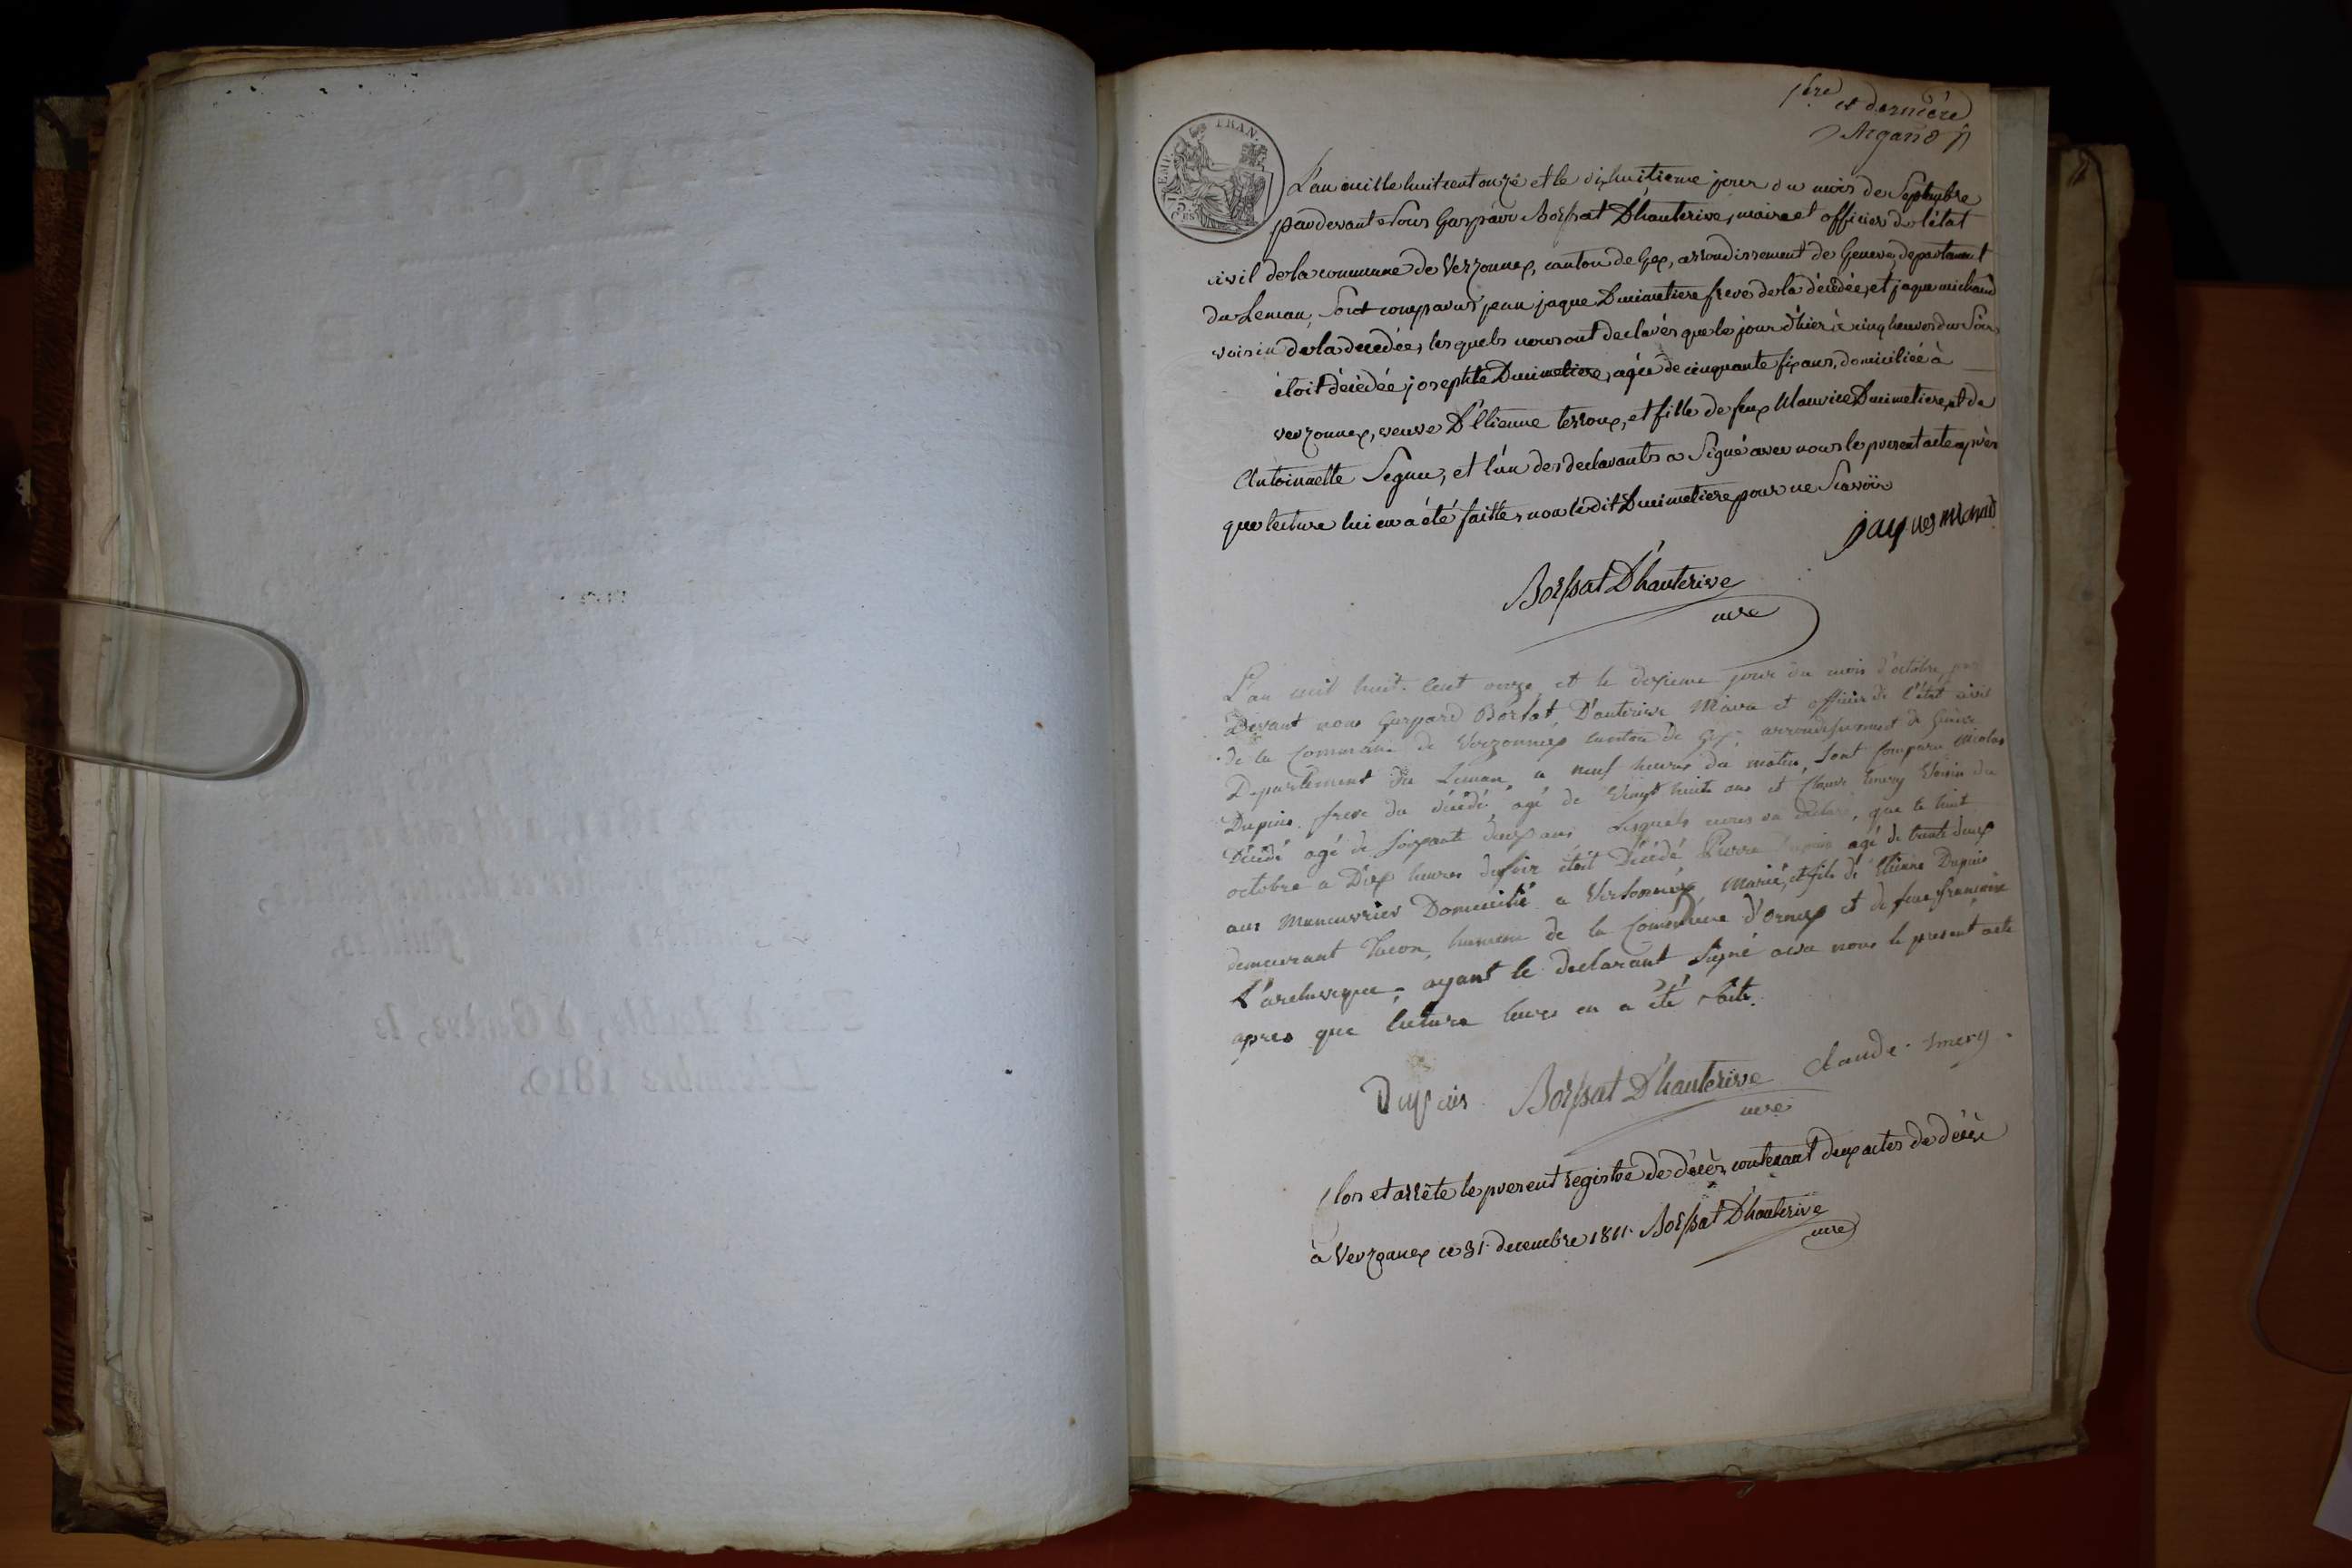 1ère et dernière
Argand
EMP. FRAN.
L'an mille huit cent onze et le dixhuitieme jour du mois de Septembre
pardevant Nous Gaspard Borssat D'hauterive, maire et officier de l'état
civil de la commune de Verzonnex, canton de Gex, arrondissement de Geneve, departement
du Leman, Sont comparus jean jaque Ducimetiere frere de la décédée, et jaque michaud
voisin de la decédée, les quels nous ont declarés que le jour d'hier à cinq heures du Soir
étoit décédée josephte Ducimetiere, agée de cinquante six ans, domiciliée à
verzonnex, veuve D'Etienne terroux, et fille de feux Maurice Ducimetiere, et de
Antoinette Segnu, et l'un des declarants a Signé avec nous le present acte après
que lecture lui en a été faitte, non le dit Ducimetiere pour ne Scavoir
jaques michaud
Borssat D'hauterive
mre
L'an mil huit cent onze et le dixieme jour du mois d'octobre, par
Devant nous Gaspard Borssat D'auterive Maire et officier de l'état civil
de la Commune de Verzonnex canton de Gex, arrondissement de Genève
Departement du Leman, a neuf heures du matin, Sont comparu Nicolas
Dupuis frere du décédé agé de Vingt huit ans et Claude Emery Voisin du
Décédé agé de soixante deux ans Lesquels nous on déclaré, que le huit
octobre a Dix heures du soir étoit Décédé Pierre Dupuis agé de trente deux
ans Maneuvrier Domicilié a Versonnex Marié, et fils de Etienne Dupuis
demeurant de la Commune d'Ornex et de feue françoise
L'archeveque, ayant le declarant Signé avec nous le present acte
apres que lecture leurs en a été faite.
Dupuis Borssat D'hauterive Claude Emery
mre
Clos et arrêté le present registre de décès, contenant deux actes de décès
à Verzonnex ce 31 decembre 1811. Borssat D'hauterive
mre